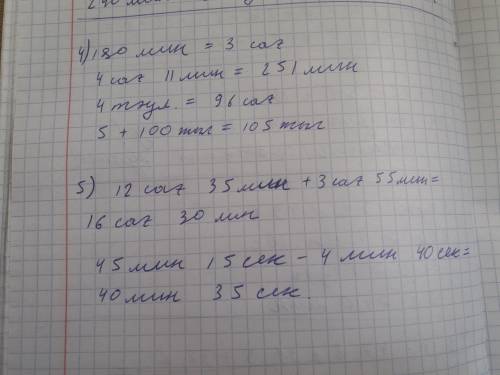 4) 180 мин = 3 саг
4 саг 11 мин = 251 мин
= 96 саг
5 + 100 тыг = 105 тыг
5) 12 саг 35 мин + 3 саг 55 мин =
16 саг 30 мин
45 мин 15 сек - 4 мин 40 сек =
40 мин 35 сек.